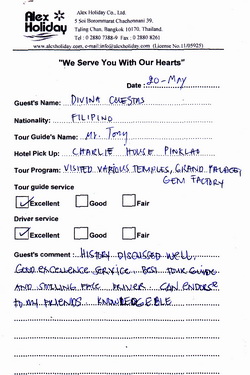 Alex Holiday
Alex Holiday Co., Ltd.
5 Soi Borommarat Chachonnani 39,
Taling Chan, Bangkok 10170, Thailand.
Tel : 0 2880 7388-9 Fax : 0 2880 8261
www.alexholiday.com, e-mail:info@alexholiday.com (License No.11/05925)
"We Serve You With Our Hearts"
Date : 20-MAY
Guest's Name: DIVINA CUESTAS
Nationality: FILIPINO
Tour Guide's Name: Mr. Tony
Hotel Pick Up: CHARLIE HOUSE PINKLAO
Tour Program: VISITED VARIOUS TEMPLES, GRAND PALACE,
GEM FACTORY
Tour guide service
Excellent Good Fair
Driver service
Excellent Good Fair
Guest's comment : HISTORY DISCUSSED WELL,
GOOD EXCELLENCE SERVICE. BEST TOUR GUIDE
AND SMILING FACE DRIVER. CAN ENDORSE
TO MY FRIENDS. KNOWLEDGEBLE